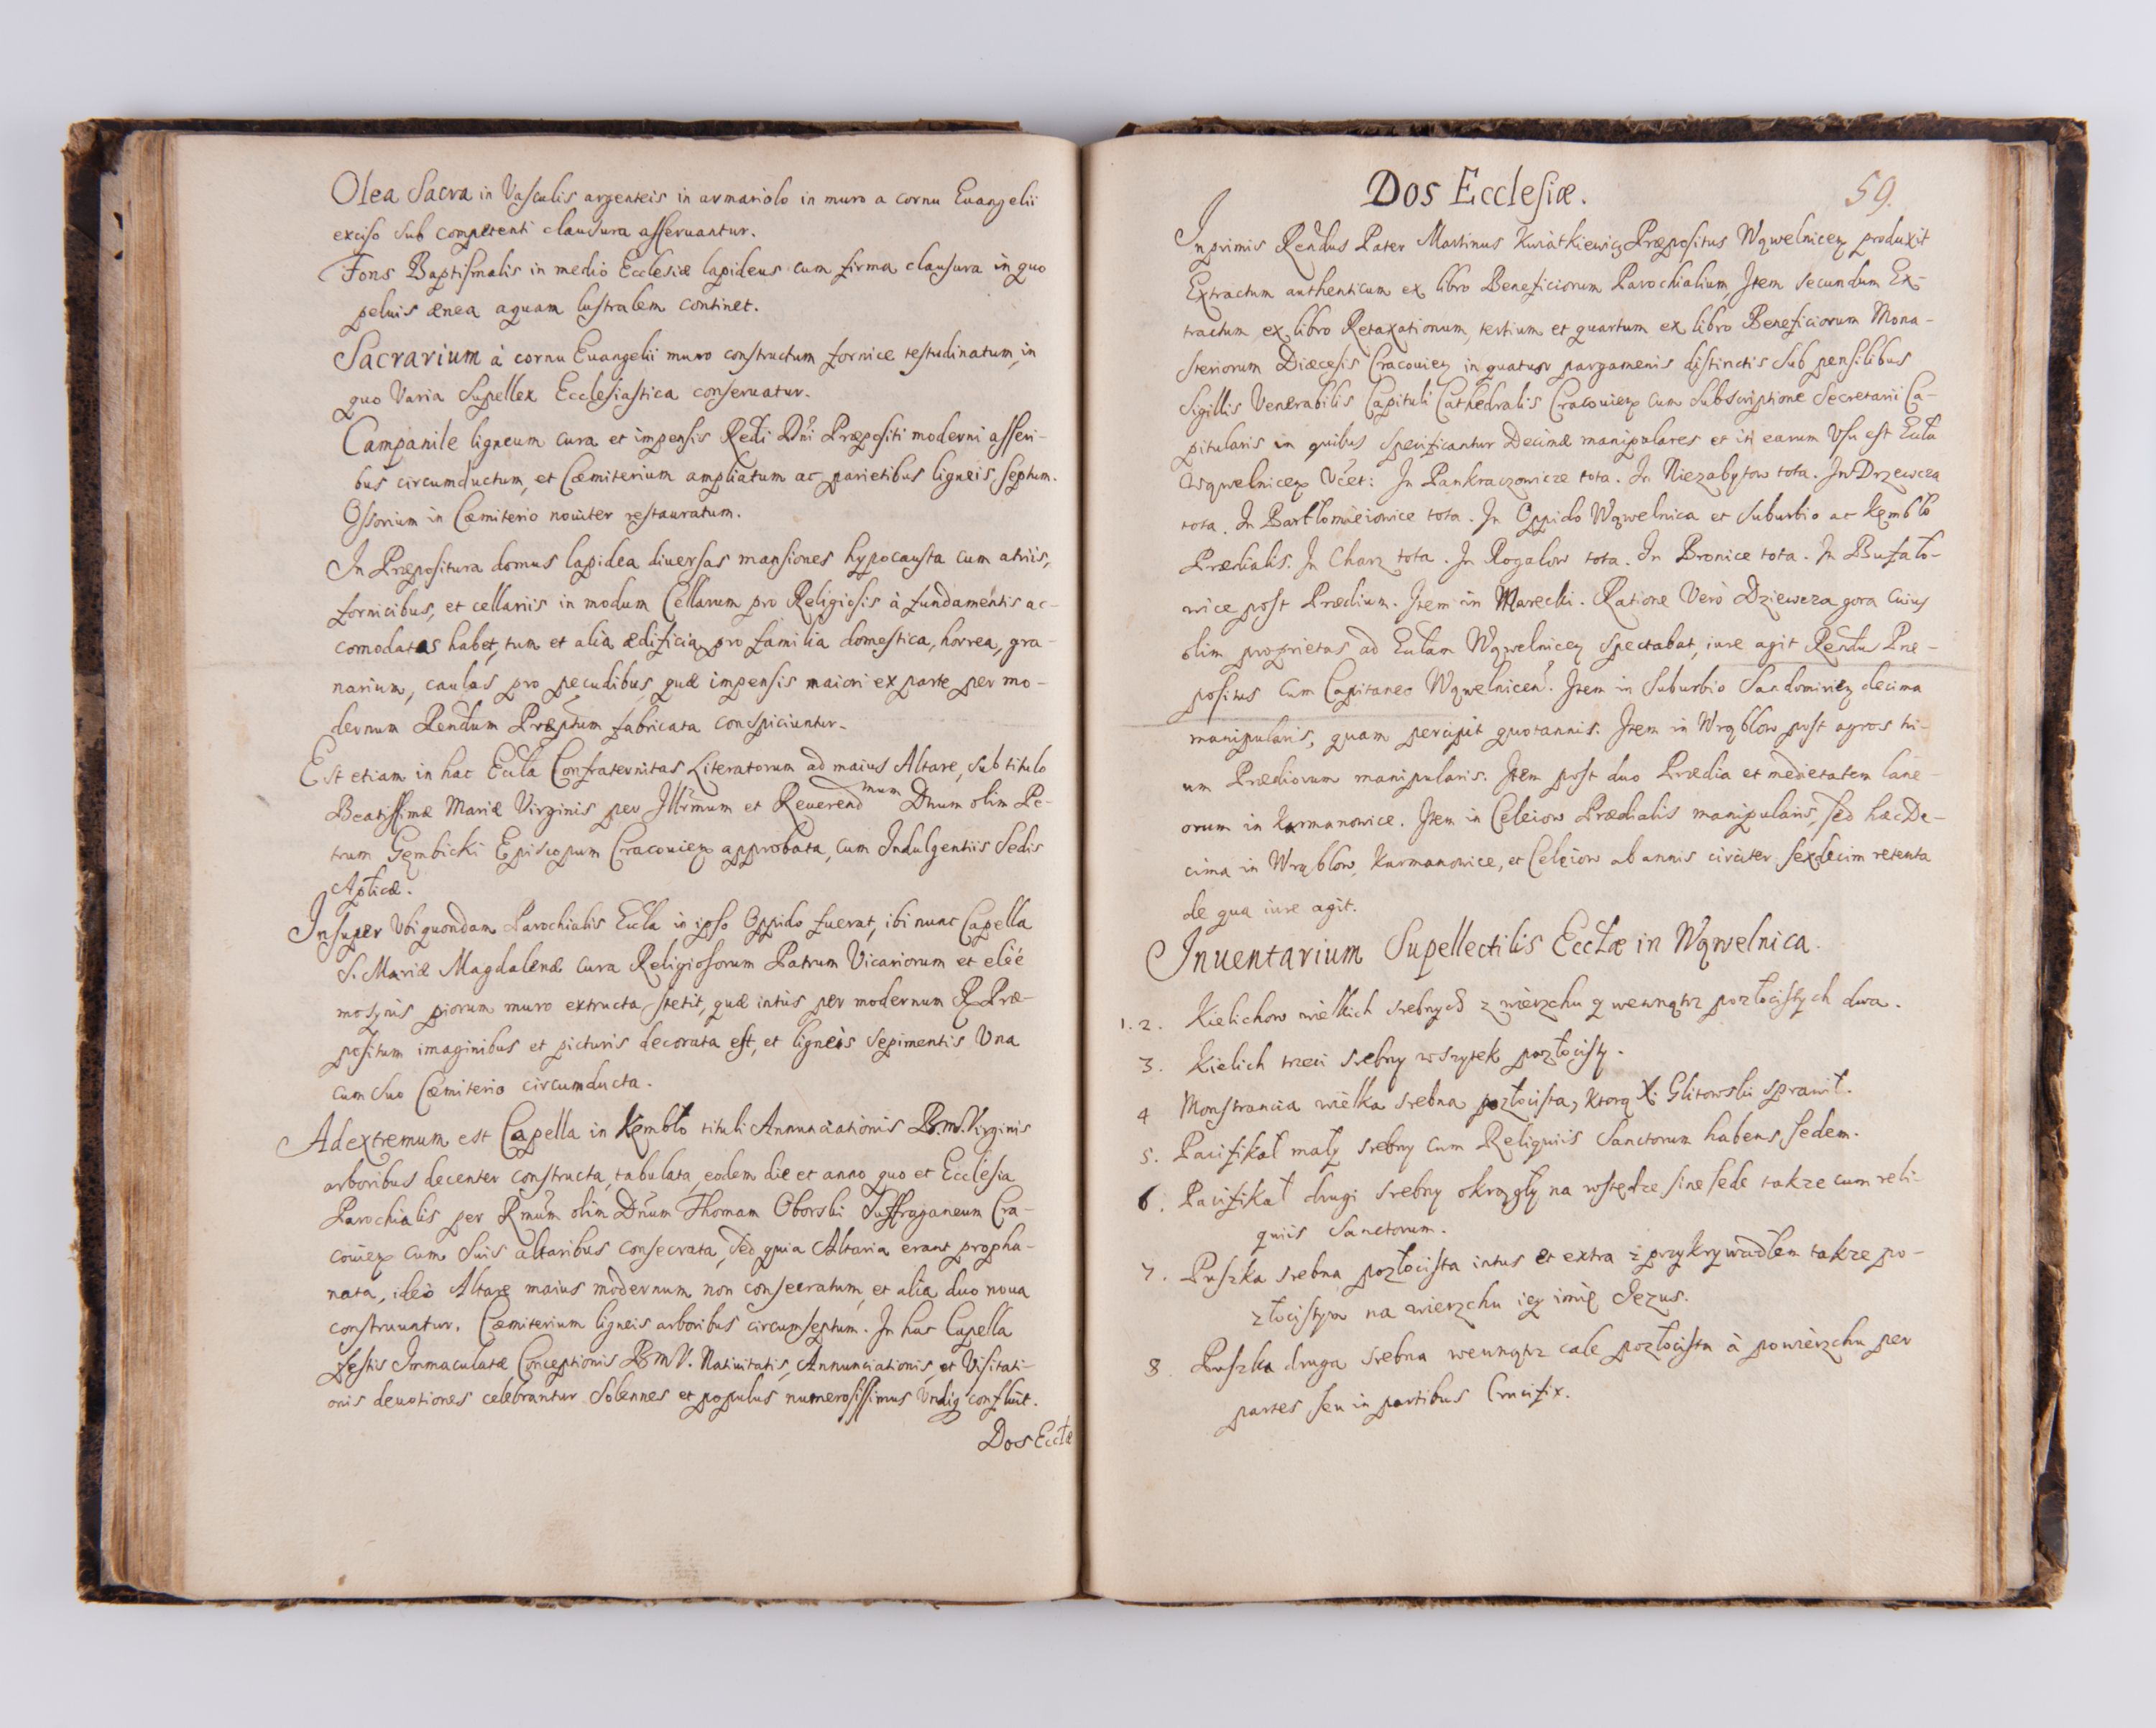 Olea Sacra in Vasculis argenteis in armariolo in muro a cornu Euangelii
exciso sub competenti clausura asseruantur.
Fons Baptismalis in medio Ecclesiæ lapideus cum firma clausura in quo
peluis ænea aquam lustralem continet.
Sacrarium à cornu Euangelii muro constructum fornice testudinatum, in
quo Varia Supellex Ecclesiastica conseruatur.
Campanile ligneum cura et impensis Rēdi Dñi Præpositi moderni asseri-
bus circumductum, et Cæmiterium ampliatum ac parietibus ligneis septum.
Ossorium in Cæmiterio nouiter restauratum.
In Præpositura domus lapidea diuersas mansiones hypocausta cum atriis,
fornicibus, et cellariis in modum Cellarum pro Religiosis à fundamentis ac-
comodatas habet, tum et alia ædificia pro familia domestica, horrea, gra-
narium, caulas pro pecudibus, quæ impensis maiori ex parte per mo-
dernum Rendum Præptum fabricata conspiciuntur.
Est etiam in hac Eccla Confraternitas Literatorum ad maius Altare, sub titulo
Beatissimæ Mariæ Virginis per Illrmum et Reuerendmum Dnum olim Pe-
trum Gembicki Episcopum Cracouień approbata, cum Indulgentiis Sedis
Aplicæ.
Insuper Vbi quondam Parochialis Eccla in ipso Oppido fuerat, ibi nunc Capella
S. Mariæ Magdalenæ cura Religiosorum Patrum Vicariorum et elee
mosynis piorum muro extructa stetit, quæ intùs per modernum R. Præ-
positum imaginibus et picturis decorata est, et ligneis sepimentis Una
cum suo Cæmiterio circumducta.
Ad extremum est Capella in Kembło tituli Annunciationis B.M.Virginis
arboribus decenter constructa, tabulata, eodem die et anno quo et Ecclesia
Parochialis per Rmum olim Dnum Thomam Oborski Suffraganeum Cra-
couień cum suis altaribus consecrata, sed quia Altaria erant propha-
nata, ideò Altare maius modernum non consecratum, et alia duo noua
construuntur. Cæmiterium ligneis arboribus circumseptum. In hac Capella
festis Immaculatæ Conceptionis B.M.V. Natiuitatis, Annunciationis, et Visitati-
onis deuotiones celebrantur Solennes et populus numerosissimus Undiq confluit.
Dos Eccłæ
Dos Ecclesiæ.
59.
Inprimis Rendus Pater Martinus Kwiatkiewicz Præpositus Wąwelniceń produxit
Extractum authenticum ex libro Beneficiorum Parochialium, Item secundum Ex-
tractum ex libro Retaxationum, tertium et quartum ex libro Beneficiorum Mona-
steriorum Diæcesis Cracouień in quatuor pargamenis distinctis sub pensilibus
Sigillis Venerabilis Capituli Cathedralis Cracouień cum Subscriptione Secretarii Ca-
pitularis in quibus specificantur Decimæ manipulares et in earum Vsu est Eccła
Wąwelniceń Vćet: In Pankraczowicze tota. In Niezabytow tota. In Drzewcza
tota. In Bartłomieiowice tota. In Oppido Wąwelnica et suburbio ac Kembło
Prædialis. In Charz tota. In Rogalow tota. In Bronice tota. In Bufało-
wice post Prædium. Item in Marecki. Ratione Verò Dziewcza gora Cuius
olim proprietas ad Eccłam Wąwelniceń spectabat, iure agit Rendus Præ-
positus cum Capitaneo Wąwelniceń. Item in Suburbio Sandomirień decima
manipularis, quam percipit quotannis. Item in Wrąblow post agros tri-
um Prædiorum manipularis. Item post duo Prædia et medietatem lane-
orum in Karmanowice. Item in Celeiow Prædialis manipularis, sed hæc De-
cima in Wrąblow, Karmanowice, et Celeiow ab annis circiter sexdecim retenta
de qua iure agit.
Inuentarium Supellectilis Eccłæ in Wąwelnica.
1. 2. Kielichow wielkich srebnych z wierzchu y wewnątrz pozłocistych dwa.
3. Kielich trzeci srebny wszytek pozłocisty.
4 Monstrancia wielka srebna pozłocista, ktorą X. Glitowski sprawił.
5. Pacifikał mały srebny cum Reliquiis Sanctorum habens sedem.
6. Pacifikał drugi srebny okrągły na wstędze sine sede takze cum reli-
quiis Sanctorum.
7. Puszka srebna pozłocista intus et extra z przykrywadłem takze po-
złocistym na wierzchu iey imię Jezus.
8. Puszka druga srebna wewnątrz cale pozłocista à powierzchu per
partes seu in partibus Crucifix.